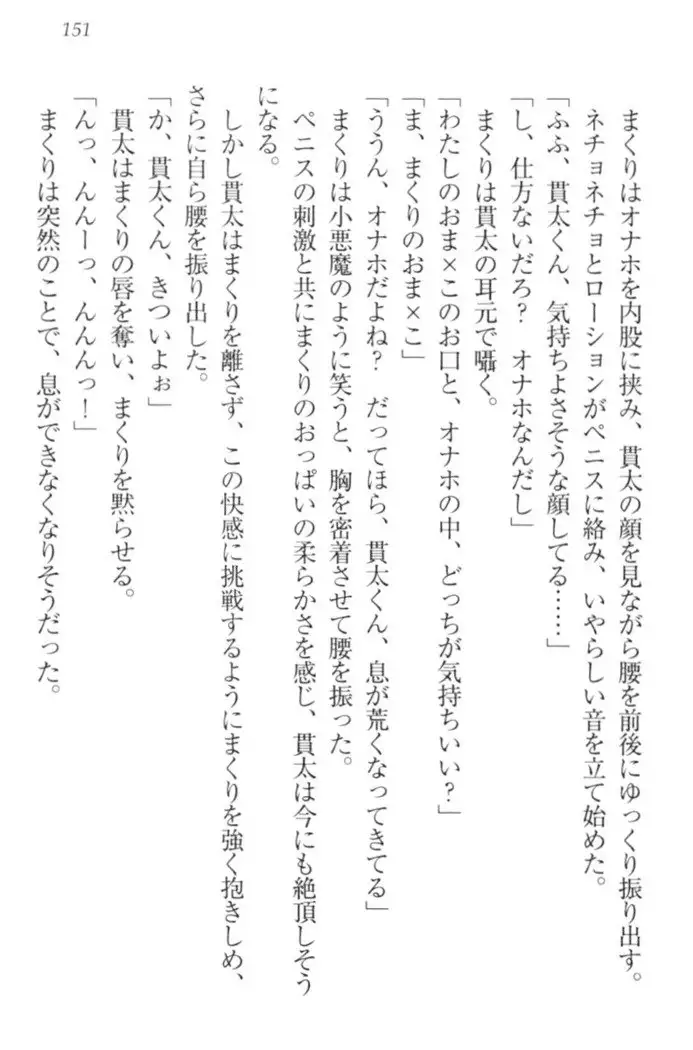 151
まくりはオナホを内股に挟み、貫太の顔を見ながら腰を前後にゆっくり振り出す。
ネチョネチョとローションがペニスに絡み、いやらしい音を立て始めた。
「ふふ、貫太くん、気持ちよさそうな顔してる……」
「し、仕方ないだろ？　オナホなんだし」
まくりは貫太の耳元で囁く。
「わたしのおま×このお口と、オナホの中、どっちが気持ちいい？」
「ま、まくりのおま×こ」
「ううん、オナホだよね？　だってほら、貫太くん、息が荒くなってきてる」
まくりは小悪魔のように笑うと、胸を密着させて腰を振った。
ペニスの刺激と共にまくりのおっぱいの柔らかさを感じ、貫太は今にも絶頂しそう
になる。
しかし貫太はまくりを離さず、この快感に挑戦するようにまくりを強く抱きしめ、
さらに自ら腰を振り出した。
「か、貫太くん、きついよぉ」
貫太はまくりの唇を奪い、まくりを黙らせる。
「んっ、んんーっ、んんんっ！」
まくりは突然のことで、息ができなくなりそうだった。